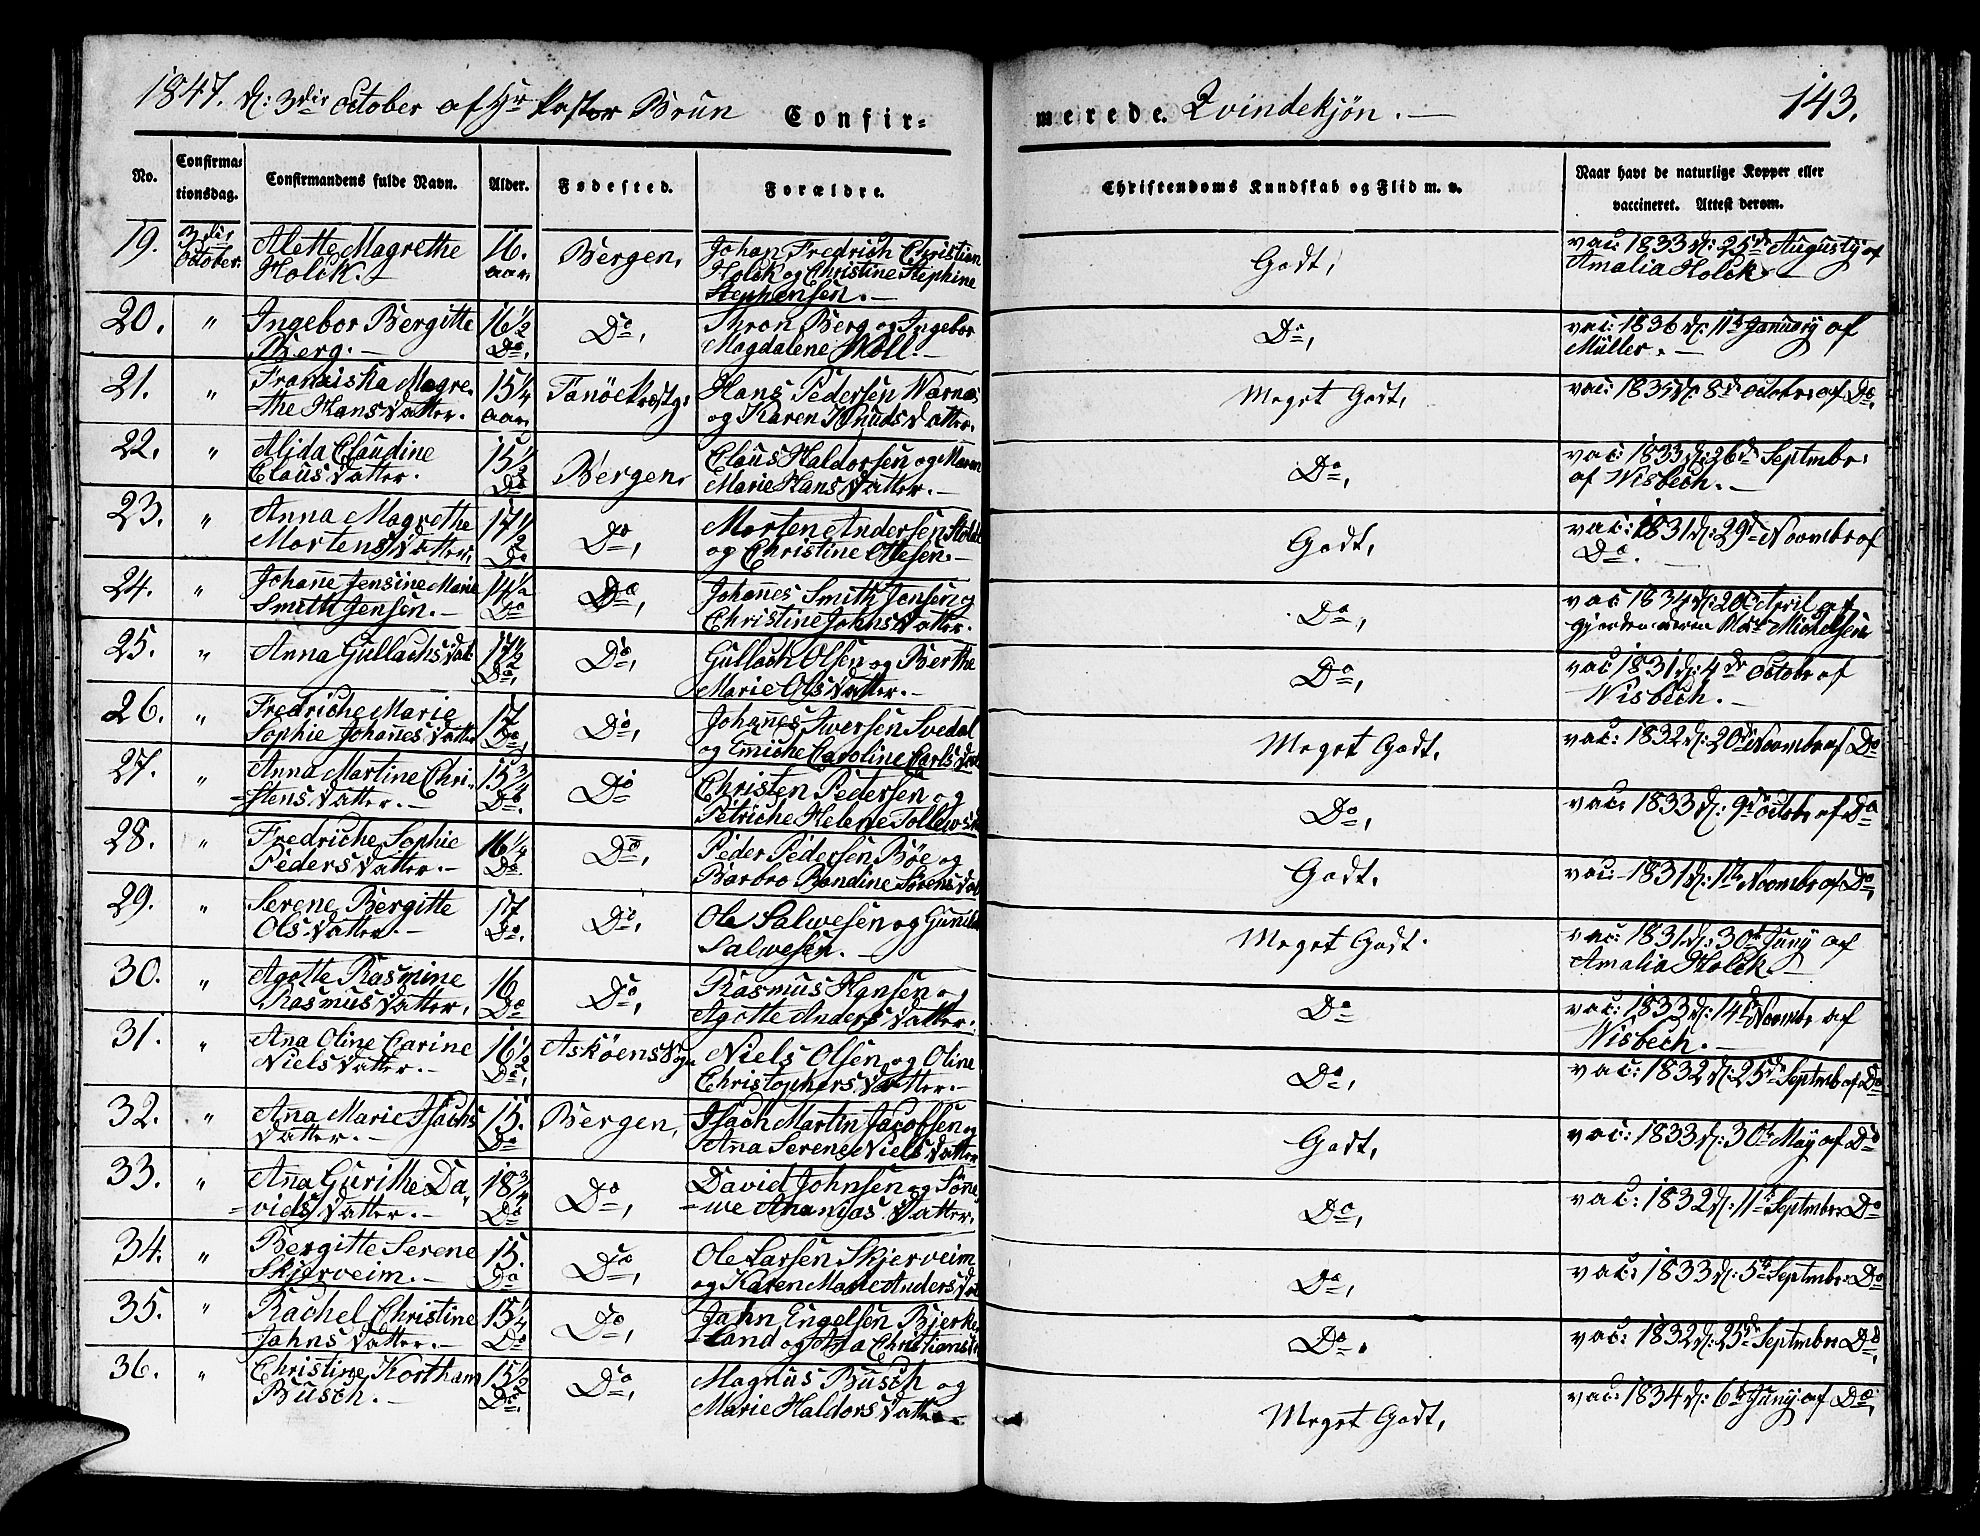 1847. d: 3die October af Hr Pastor Brun Confir=
merede. Qvindekjön. — 143.
No. Confirma= tionsdag. Confirmandens fulde Navn. Alder. Fødested. Forældre. Christendoms Kundskab og Flid m. v. Naar havt de naturlige Kopper eller
vaccineret. Attest derom.
19. 3die October Alette Magrethe 16. Bergen, Johan Fredrich Christian Godt, vac: 1833 d: 25de Augusty af
Holck. — aar. Holck og Christine Stephine Amalia Holck —
Stephensen. —
20. " Ingebor Bergitte 16½ Do, Thron Berg og Ingebor Do, vac: 1836 d: 11te January af
Berg. — Do. Magdalene Moll. — Müller. —
21. " Franciska Magre= 15¼ Hans Pedersen Meget Godt, vac: d: 8de October af Do,
=the Hansdatter. aar. og Karen Knudsdatter.
22. " Alida Claudine 15½ Bergen, Claus Haldorsen og Maren Do, vac: 1833 d: 26de Septmbr:
Clausdatter. Do Marie Hansdatter. — af Wisbech. —
23. " Anna Magrethe 17½ Do, Morten Andersen Godt, vac: 1831 d: 29de Noombr af
Mortensdatter, Do og Christine Olesen. — Do. —
24. " Johañe Jensine Marie 14½ Do, Johañes Smith Jensen og Do, vac 1834 d: 20de April af
Smith Jensen. — Do Christine Johnsdatter. Michelsen
25. " Anna Gullachsdat 17½ Do, Gullach Olsen og Berthe Do, vac 1831 d: 4de October af
Do, Marie Olsdatter. — Wisbech. —
26. " Fredriche Marie 17 Do, Johañes Iversen Svedal Meget Godt, vac: 1832 d: 20de Noombr af Do
Sophie Johañesdatter Do, og Emiche Caroline Carlsdat
27. " Anna Martine Chri= 15¾ Do Christen Pedersen og Do, vac: 1833 d: 9de Octobr af Do
=stensdatter. — Do. Petriche Helene
28. " Fredriche Sophie 16¼ Do, Peder Pedersen Böe og Godt, vac: 1831 d: 11te Noombr af Do,
Pedersdatter. — Do Barbro Bondine Sörensdat
29. " Serene Bergitte 17 Do, Ole Salvesen og Meget Godt. vac: 1831 d: 30te Juny af
Olsdatter. — Do. Salvesen. — Amalia Holck. —
30. " Agotte Rasmine 16 Do, Rasmus Hansen og Do vac: 1833 d: 14de Noombr af
Rasmusdatter, Do Agotte Andersdatter. Wisbech. —
31. " Ana Oline Carine 16½ Askøens Niels Olsen og Oline Do, vac: 1832 d: 25de Septmb af Do
Nielsdatter. — Do, Christophersdatter. —
32. " Ana Marie Isachs 15. Bergen, Isach Martin Jacobsen og Godt, vac: 1833 d: 30te May af Do
datter. — Do Ana Serene Nielsdatter
33. " Ana Gurithe Da= 18¾ Do, David Johnsen og Do, vac: 1832 d: 11te Septmbr Do
=vidsdatter. — Do Ananiasdatter.
34. " Bergitte Serene 15. Do, Ole Larsen Skjerveim Do, vac: 1833 d: 5te Septmbr Do
Skjerveim. — Do og Karen Andersdat
35. " Rachel Christine 15¼ Do, Jahn Engelsen Bjerke Do. vac: 1832 d: 25de Septmbr Do,
Jahnsdatter. — Do =land og
36. " Christine Kortham 15½ Do, Magnus Busch og Meget Godt, vac: 1834 d: 6te Juny af Do,
Busch. — Do. Marie Haldorsdatter —